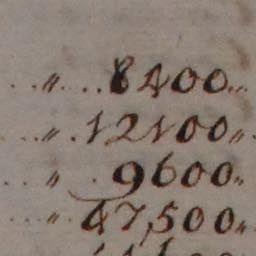 " 8400"
" 12100"
" 9600"
" 47,500"